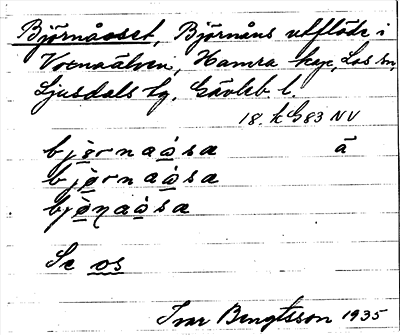 Björnåoset, Björnåns utflöde i
Voxnaälven, Hamra kap, Los sn,
Ljusdals tg. Gävleb l.
18. k G83 NV
bjo̲rnaò̲sa ā
bjo̲rnaò̲sa
bjo̲ṇaò̲sa
Se os
Ivar Bengtsson 1935